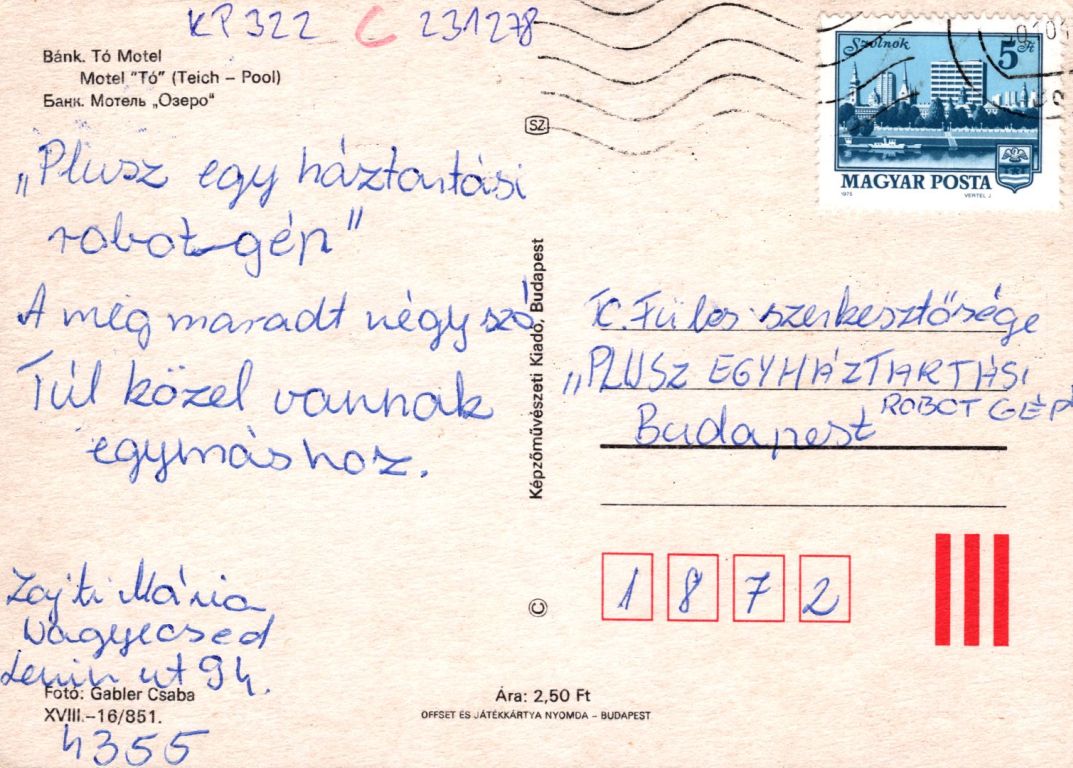 KP322 C 231278
Bánk. Tó Motel
Motel "Tó" (Teich – Pool)
Банк. Мотель „Озеро“
SZ
„Plusz egy háztartási
robot-gép"
A meg maradt négy szó
Túl közel vannak
egymáshoz.
Zajti Mária
Nagyecsed
Lenin ut 94.
Fotó: Gabler Csaba
XVIII.–16/851.
4355
Képzőművészeti Kiadó, Budapest
©
Ára: 2,50 Ft
OFFSET ÉS JÁTÉKKÁRTYA NYOMDA – BUDAPEST
Szolnok
5 Ft
MAGYAR POSTA
1975 VERTEL J
Füles szerkesztősége
„PLUSZ EGY HÁZTARTÁSI
ROBOT GÉP"
Budapest
1872